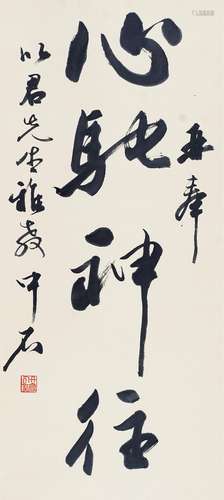 再奉
心驰神往
以君先生雅教 中石